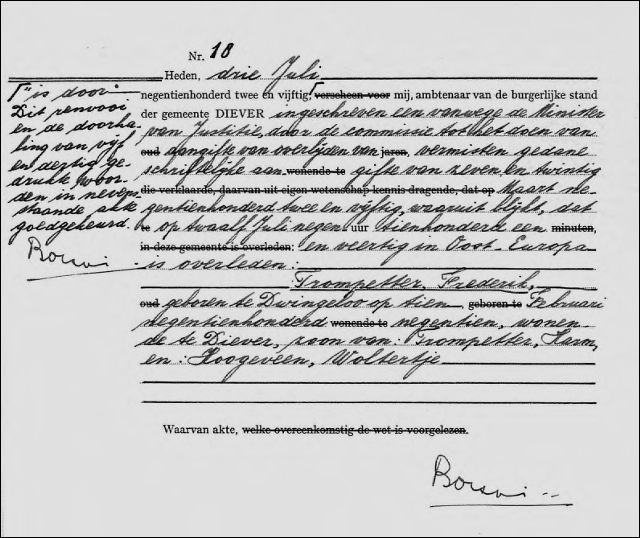 Nr. 18
Heden, drie Juli
negentienhonderd twee en vijftig, verscheen voor mij, ambtenaar van de burgerlijke stand
der gemeente DIEVER ingeschreven een vanwege de Minister
van Justitie, door de commissie tot het doen van
oud aangifte van overlijden van jaren, vermisten gedane
schriftelijke aan wonende te gifte van zeven en twintig
die verklaarde, daarvan uit eigen wetenschap kennis dragende, dat op Maart ne-
gentienhonderd twee en vijftig, waaruit blijkt, dat
te op twaalf Juli negen uur tienhonderd een minuten,
in deze gemeente is overleden: en veertig in Oost-Europa
is overleden:
Trompetter, Frederik,
oud geboren te Dwingeloo op tien geboren te Februari
negentienhonderd wonende te negentien, wonen-
de te Diever, zoon van: Trompetter, Harm,
en: Hoogeveen, Woltertje
Waarvan akte, welke overeenkomstig de wet is voorgelezen.
"is door"
Dit renvooi
en de doorha-
ling van vijf
en dertig ge-
drukte woor-
den in neven-
staande akte
goedgekeurd.